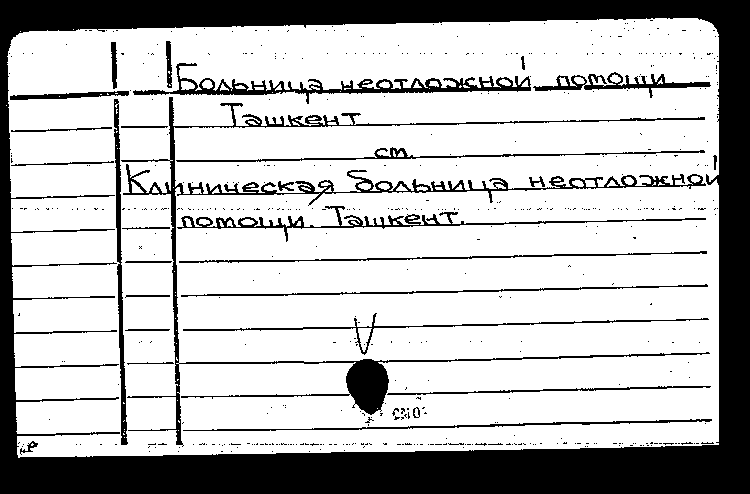 Больница неотложной помощи.
Ташкент
см.
Клиническая больница неотложной
помощи. Ташкент.